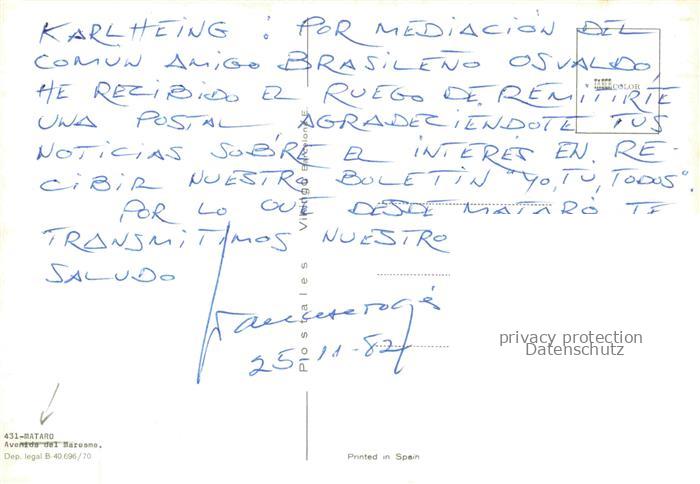 KARLHEING : POR MEDIACIÓN DEL
COMUN AMIGO BRASILEÑO OSVALDO,
HE RECIBIDO EL RUEGO DE REMITIRTE
UNA POSTAL AGRADECIENDOTE TUS
NOTICIAS SOBRE EL INTERES EN RE-
CIBIR NUESTRO BOLETIN "YO, TU, TODOS".
POR LO QUE DESDE MATARÓ TE
TRANSMITIMOS NUESTRO
SALUDO
25-11-82
COLOR
Postales Vikingo Barcelona
privacy protection
Datenschutz
431-MATARO
Avenida del Maresme.
Dep. legal B 40.696/70
Printed in Spain